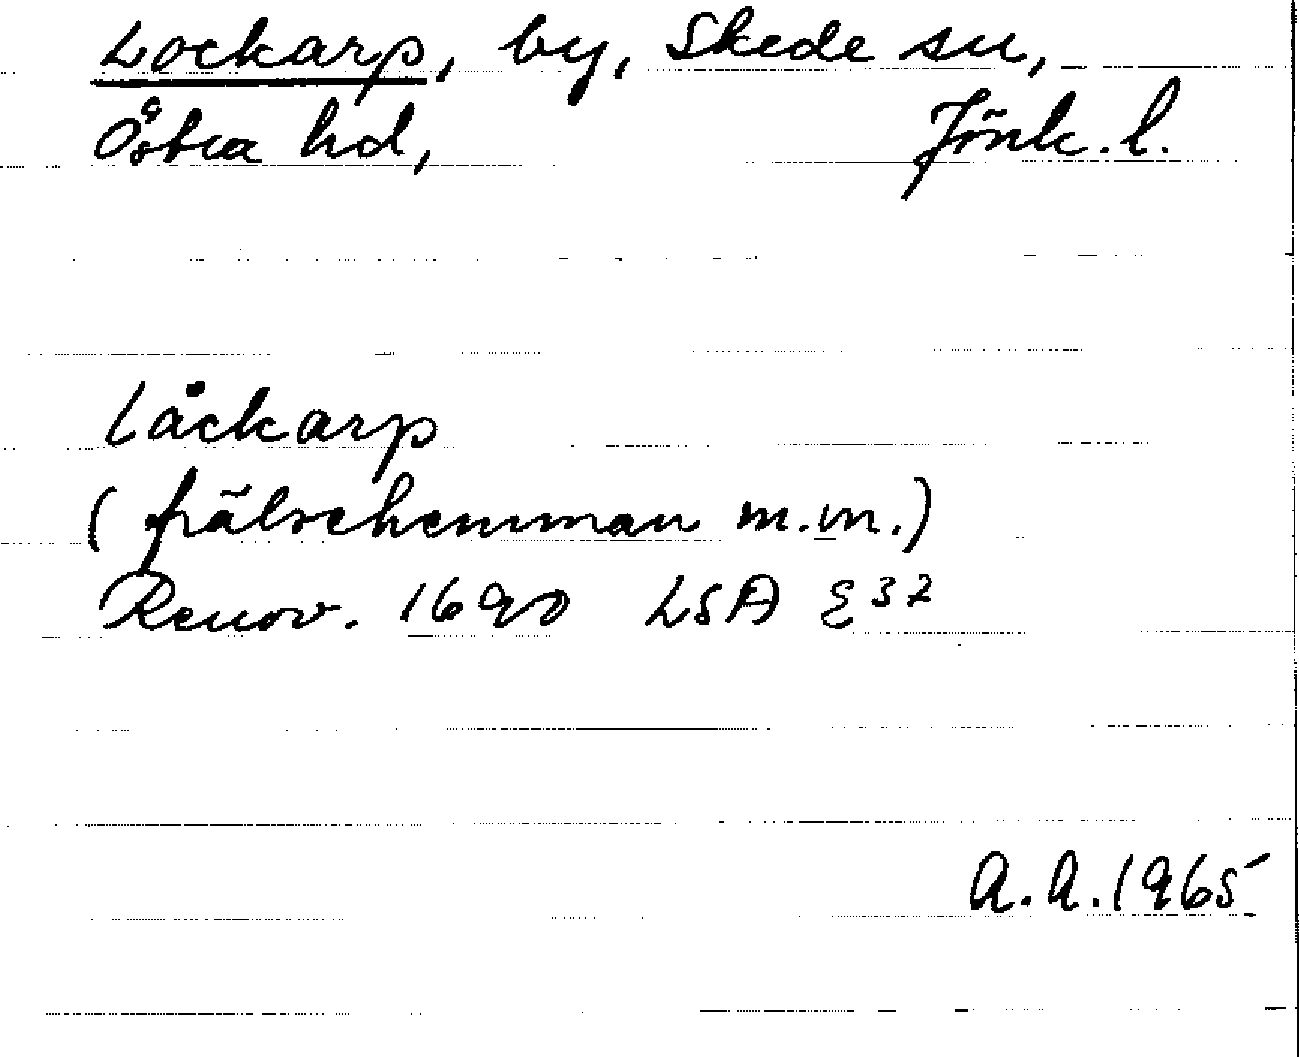 Lockarp, by, Skede sn,
Östra hd, Jönk. l.
Låckarp
(frälsehemman m.m.)
Renov. 1690 LSA E 37
A.A. 1965